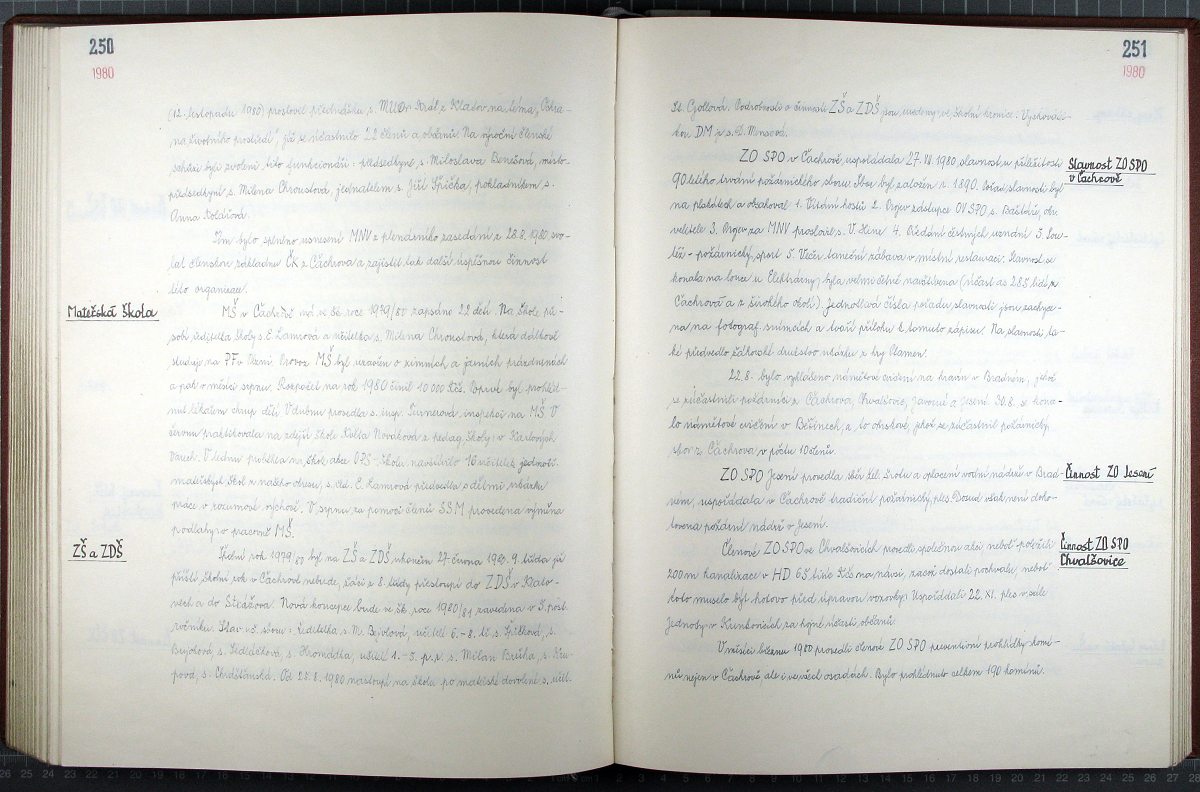 250
1980
(12. listopadu 1980) proslovil přednášku s. MUDr Král z Klatov na téma, Ochra-
na životního prostředí, jíž se účastnilo 22 členů a občanů. Na výroční členské
schůzi byli zvoleni tito funkcionáři: předsedkyně s. Miloslava Benešová, místo-
předsedkyně s. Milena Chroustová, jednatelem s. Jiří Špička, pokladníkem s.
Anna Kolářová.
Tím bylo splněno usnesení MNV z plenárního zasedání z 28.8.1980 svo-
lat členskou základnu ČK z Čachrova a zajistit tak další úspěšnou činnost
této organizace.
Mateřská škola
MŠ v Čachrově má ve šk. roce 1979/80 zapsáno 22 dětí. Na škole pů-
sobí ředitelka školy s. E. Lamrová a učitelka s. Milena Chroustová, která dálkově
studuje na PF v Plzni. Provoz MŠ byl uzavřen o zimních a jarních prázdninách
a pak v měsíci srpnu. Rozpočet na rok 1980 činil 10 000 Kčs. Poprvé byl prohléd-
nut lékařem chrup dětí. V dubnu provedla s. insp. Turnerová inspekci na MŠ. V
červnu praktikovala na zdejší škole Květa Nováková z pedag. školy v Karlových
Varech. V lednu proběhla na škole akce OPS - školu navštívilo 16 učitelek jednotř.
mateřských škol z našeho okresu, s. řed. E. Lamrová předvedla s dětmi ukázku
práce v rozumové výchově. V srpnu za pomoci členů SSM provedena výměna
podlahy v pracovně MŠ.
ZŠ a ZDŠ
Školní rok 1979/80 byl na ZŠ a ZDŠ ukončen 27. června 1980. 9. třída již
příští školní rok v Čachrově nebude, žáci z 8. třídy přestoupí do ZDŠ v Klato-
vech a do Strážova. Nová koncepce bude ve šk. roce 1980/81 zavedena v 5. post.
ročníku. Stav uč. sboru: ředitelka s. M. Bejvlová, učitelé 6.-8. tř. s. Špičková, s.
s. Sedláčková, s. Hromádka, učitelé 1.-5. p.r. s. Milan Brůha, s.
s. Chrástanská. Od 27.8.1980 nastoupí na školu po mateřské dovolené s. učit.
251
1980
St. Gollová. Podrobnosti o činnosti ZŠ a ZDŠ jsou uvedeny ve školní kronice. Vychovatel-
kou DM je s. D. Mensová.
Slavnost ZO SPO
v Čachrově
ZO SPO v Čachrově uspořádala 27.VII.1980 slavnost u příležitosti
90 letého trvání požárnického sboru. Sbor byl založen r. 1890. Pořad slavnosti byl
na plakátech a obsahoval 1. Vítání hostů 2. Projev zástupce OV SPO s. Baštáře,
velitele 3. Projev za MNV proslovil s. V. 4. Předání čestných uznání 5. Sou-
těž - požárnický sport 5. Večer taneční zábava v místní restauraci. Slavnost se
konala na louce u Elektrárny, byla velmi četně navštívena (účast as 285 lidí z
Čachrova a z širokého okolí). Jednotlivá čísla pořadu slavnosti jsou zachyce-
na na fotograf. snímcích a tvoří přílohu k tomuto zápisu. Na slavnosti ta-
ké předvedlo žákovské družstvo ukázku z hry Plamen.
22.8. bylo vyhlášeno námětové cvičení na kravín v Bradném, jehož
se zúčastnili požárníci z Čachrova, Chvalšovic, Javorné a Jesení. 30.8. se kona-
lo námětové cvičení v Běšinech, a to okrskové, jehož se zúčastnil požárnický
sbor z Čachrova v počtu 10 členů.
Činnost ZO Jesení
ZO SPO Jesení provedla sběr žel. šrotu a oplocení vodní nádrže v Brad-
ném, uspořádala v Čachrově tradiční požárnický ples. Dosud však není doho-
tovena požární nádrž v Jesení.
Činnost ZO SPO
Chvalšovice
Členové ZO SPO ve Chvalšovicích provedli společnou akci neboť položili
200 m kanalizace v HD 65 tisíc Kčs na návsi, začež dostali pochvalu, neboť
toto muselo být hotovo před úpravou vozovky. Uspořádali 22.XI. ples v sále
Jednoty v Kunkovicích za hojné účasti občanů.
V měsíci březnu 1980 provedli členové ZO SPO preventivní prohlídky komí-
nů nejen v Čachrově ale i ve všech osadách. Bylo prohlédnuto celkem 190 komínů.